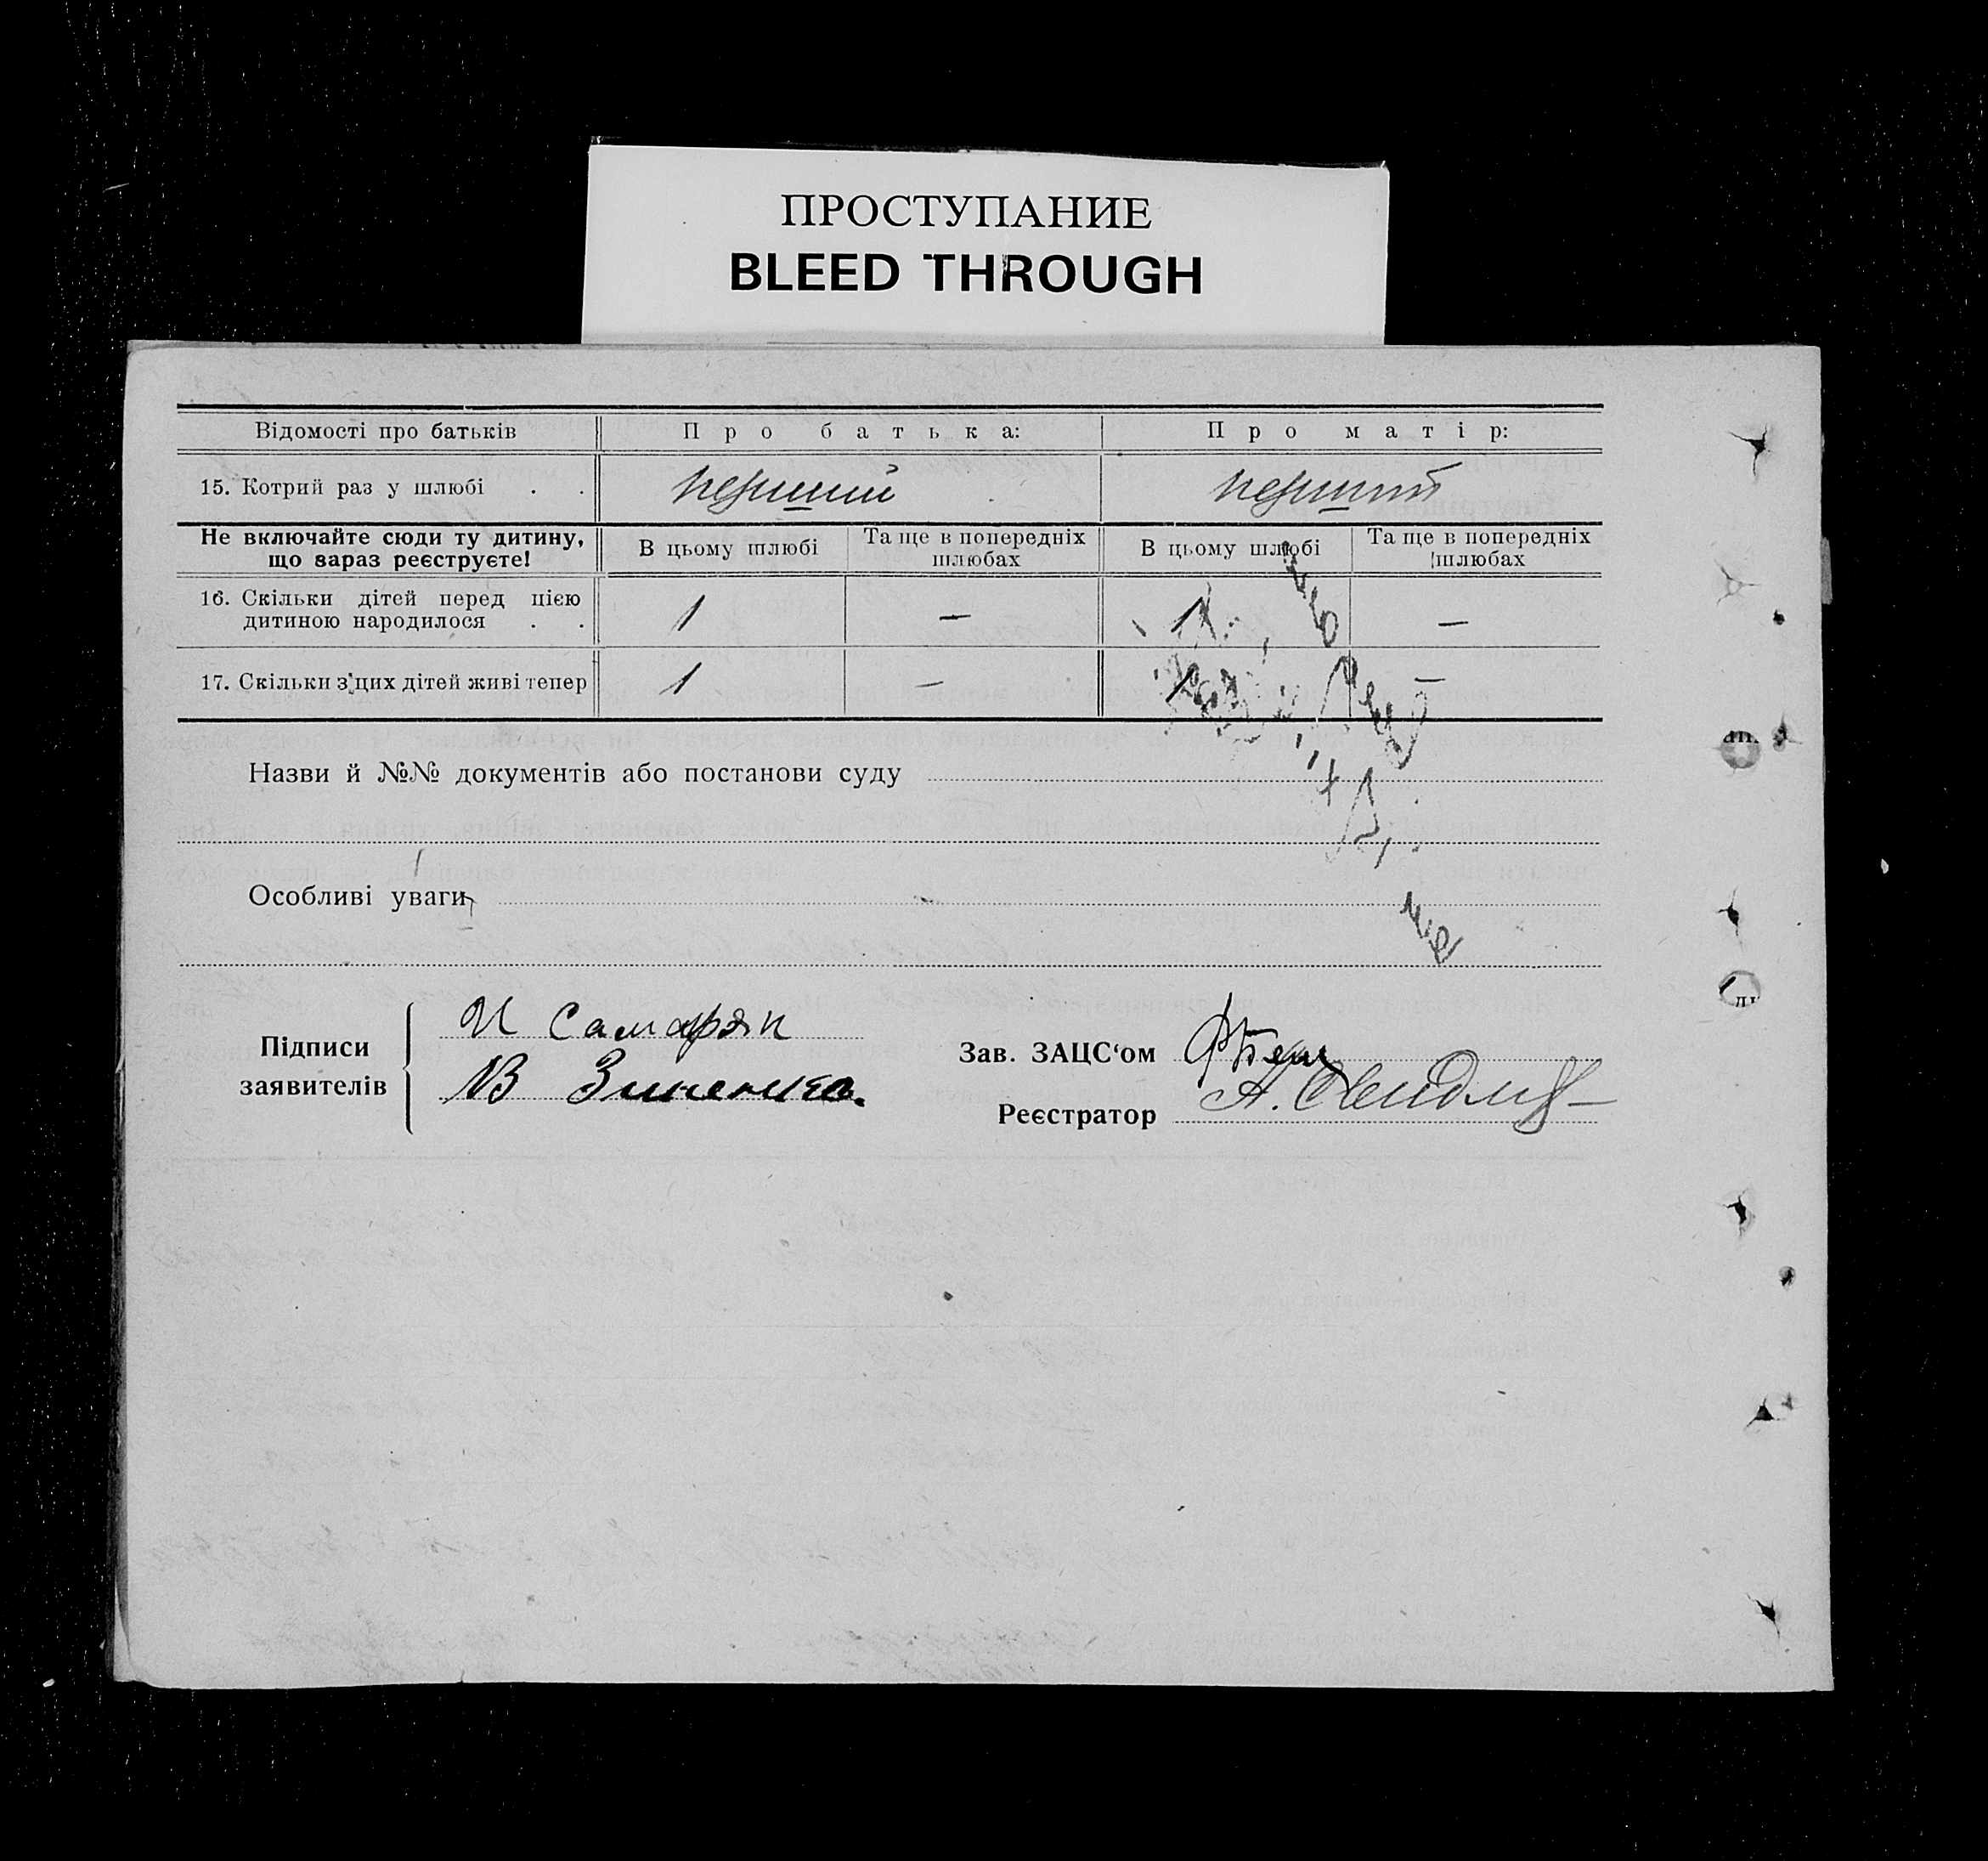 ПРОСТУПАНИЕ
BLEED THROUGH
Відомості про батьків Про батька: Про матір:
15. Котрий раз у шлюбі . . перший перший
Не включайте сюди ту дитину, що зараз реєструєте! В цьому шлюбі Та ще в попередніх шлюбах В цьому шлюбі Та ще в попередніх шлюбах
16. Скільки дітей перед цією дитиною народилося . . 1 — 1 —
17. Скільки з цих дітей живі тепер 1 — 1 —
Назви й №№ документів або постанови суду
Особливі уваги
Підписи заявителів
И Самарян
В Зиненко.
Зав. ЗАЦС‘ом
Реєстратор А.